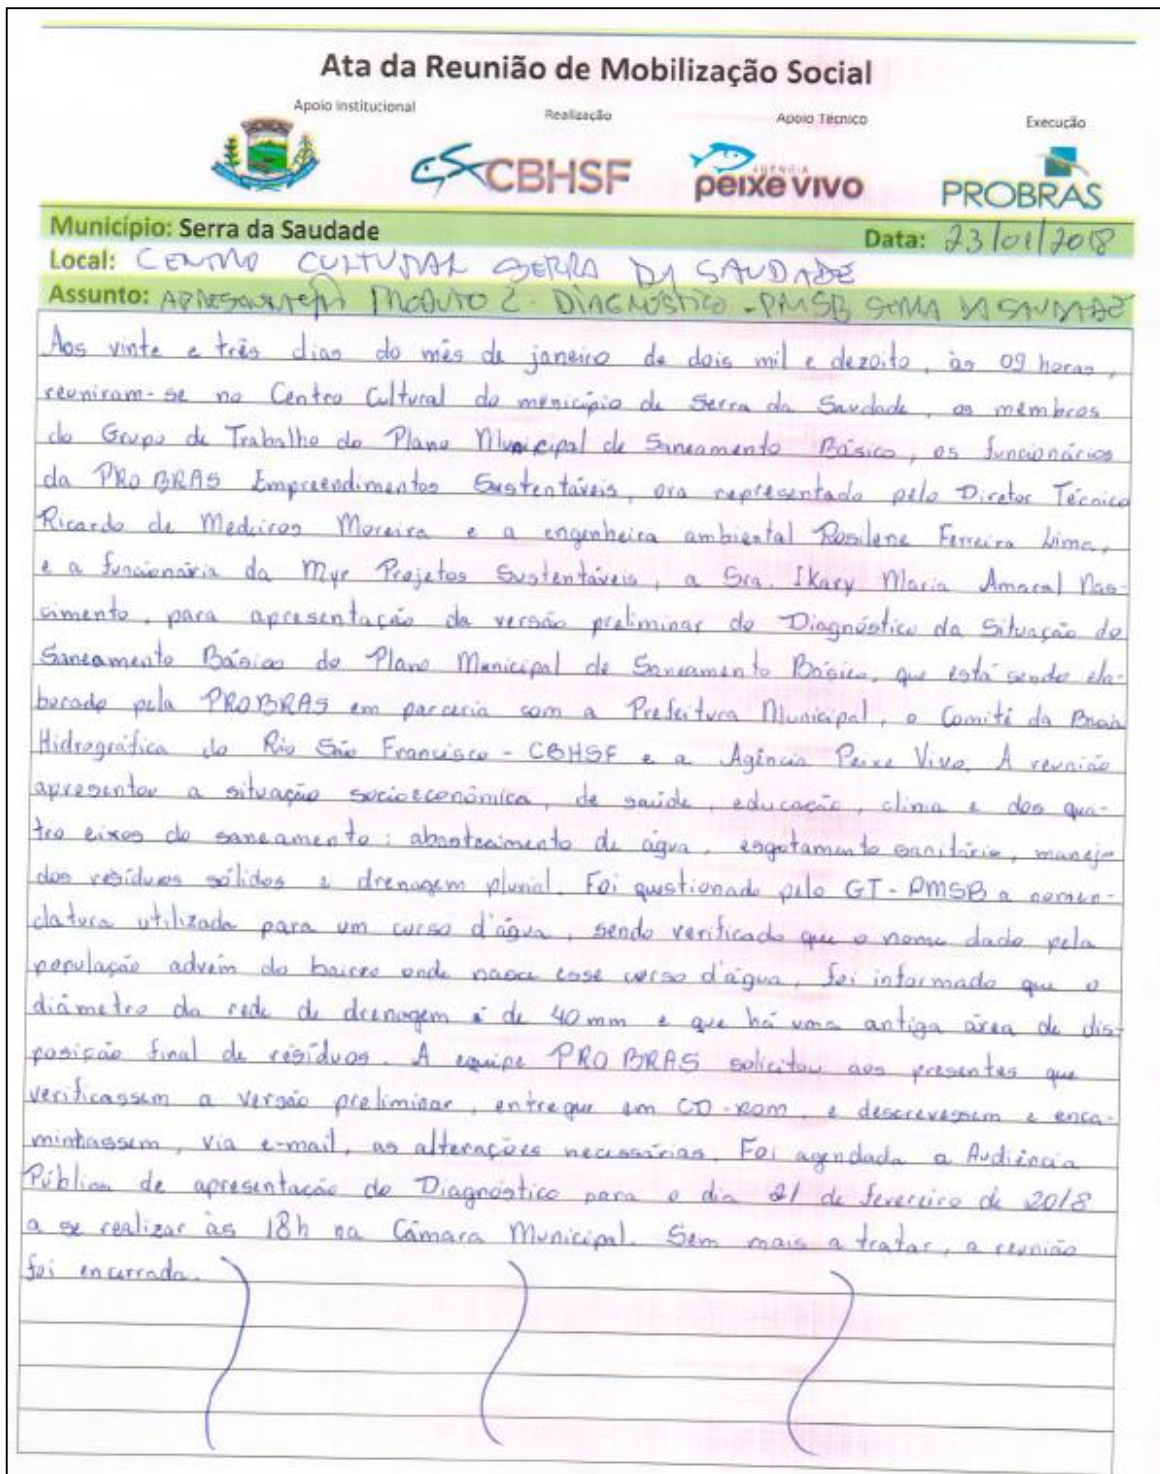 Ata da Reunião de Mobilização Social
Apoio Institucional Realização Apoio Técnico Execução
CBHSF AGÊNCIA peixe vivo PROBRAS
Município: Serra da Saudade Data: 23/01/2018
Local: CENTRO CULTURAL SERRA DA SAUDADE
Assunto: APRESENTAÇÃO PRODUTO 2 - DIAGNÓSTICO - PMSB SERRA DA SAUDADE
Aos vinte e três dias do mês de janeiro de dois mil e dezoito, às 09 horas,
reuniram-se no Centro Cultural do município de Serra da Saudade, os membros
do Grupo de Trabalho do Plano Municipal de Saneamento Básico, os funcionários
da PROBRAS Empreendimentos Sustentáveis, ora representado pelo Diretor Técnico
Ricardo de Medeiros Moreira e a engenheira ambiental Rosilene Ferreira Lima,
e a funcionária da Myr Projetos Sustentáveis, a Sra. Ikary Maria Amaral Nas-
cimento, para apresentação da versão preliminar do Diagnóstico da Situação do
Saneamento Básico do Plano Municipal de Saneamento Básico, que está sendo ela-
borado pela PROBRAS em parceria com a Prefeitura Municipal, o Comitê da Bacia
Hidrográfica do Rio São Francisco - CBHSF e a Agência Peixe Vivo. A reunião
apresentou a situação socioeconômica, de saúde, educação, clima e dos qua-
tro eixos do saneamento: abastecimento de água, esgotamento sanitário, manejo
dos resíduos sólidos e drenagem pluvial. Foi questionado pelo GT-PMSB a nomen-
clatura utilizada para um curso d'água, sendo verificado que o nome dado pela
população advém do bairro onde nasce esse curso d'água, foi informado que o
diâmetro da rede de drenagem é de 40 mm e que há uma antiga área de dis-
posição final de resíduos. A equipe PROBRAS solicitou aos presentes que
verificassem a versão preliminar, entregue em CD-rom, e descrevessem e enca-
minhassem, via e-mail, as alterações necessárias. Foi agendada a Audiência
Pública de apresentação do Diagnóstico para o dia 21 de fevereiro de 2018
a se realizar às 18h na Câmara Municipal. Sem mais a tratar, a reunião
foi encerrada.